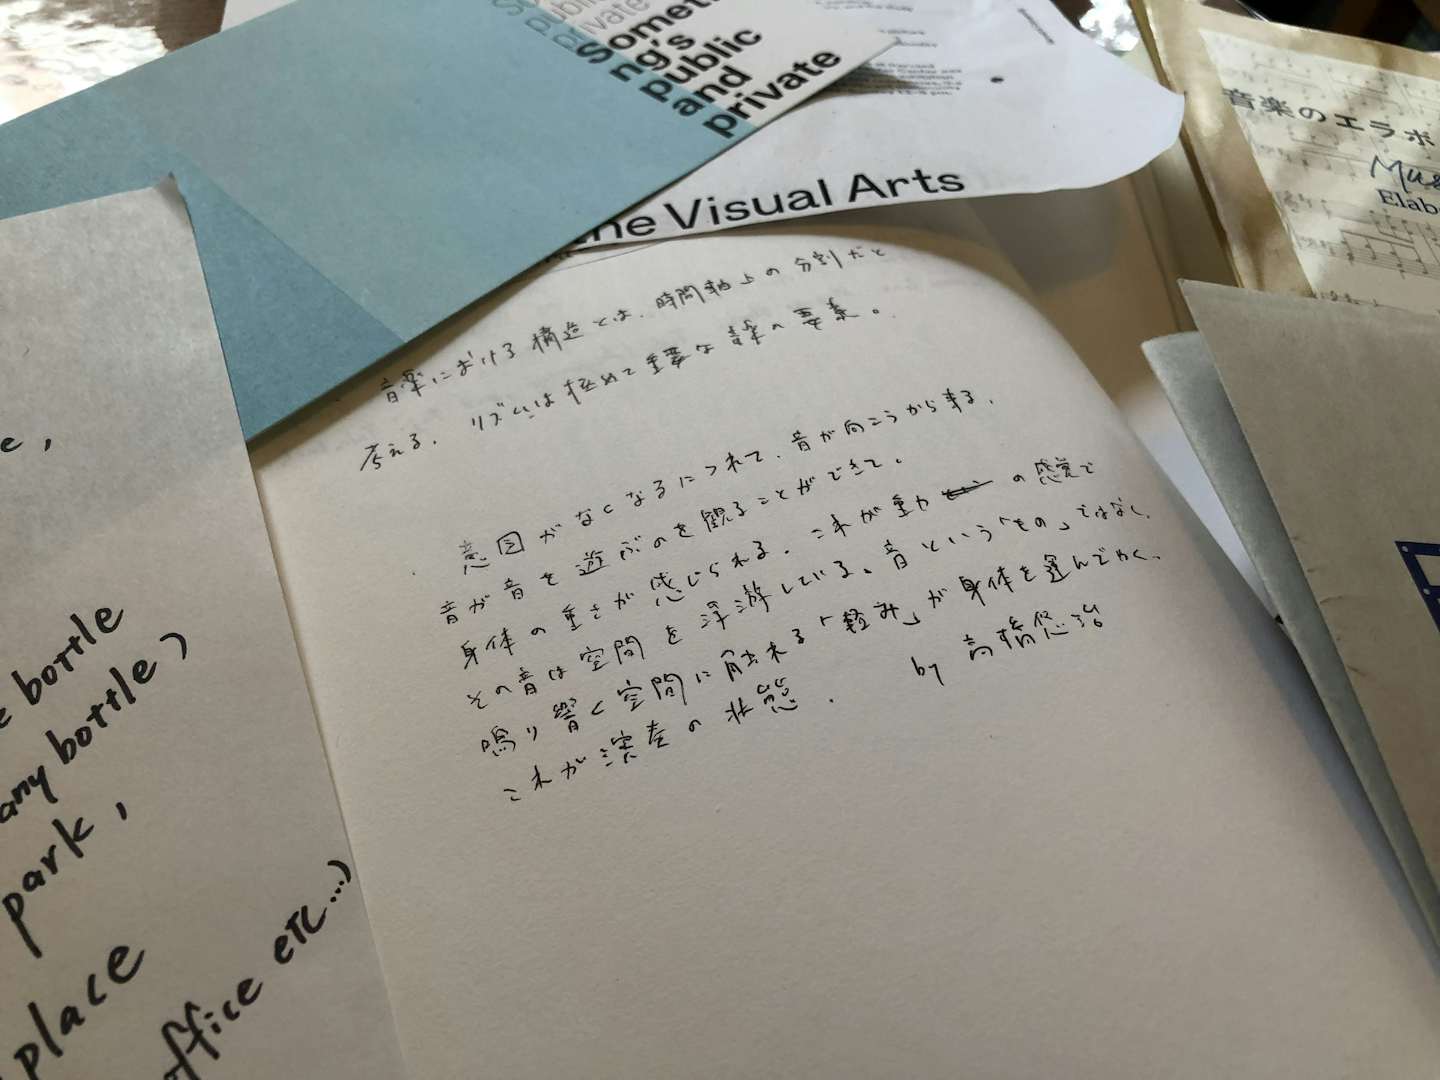 Someth
ng's
public
and
private
the Visual Arts
音楽のエラボ
Mus
Elab
音楽における構造とは、時間軸上の分割だと
考える。リズムは極めて重要な音楽の要素。
意図がなくなるにつれて、音が向こうから来る、
音が音を遊ぶのを観ることができて、
身体の重さが感じられる。これが重力の感覚で
その音は空間を浮遊している。音という「もの」ではなく、
鳴り響く空間に触れる「軽み」が身体を運んでゆく、
これが演奏の状態。 by 高橋悠治
e,
bottle
any bottle)
park,
place
office etc...)